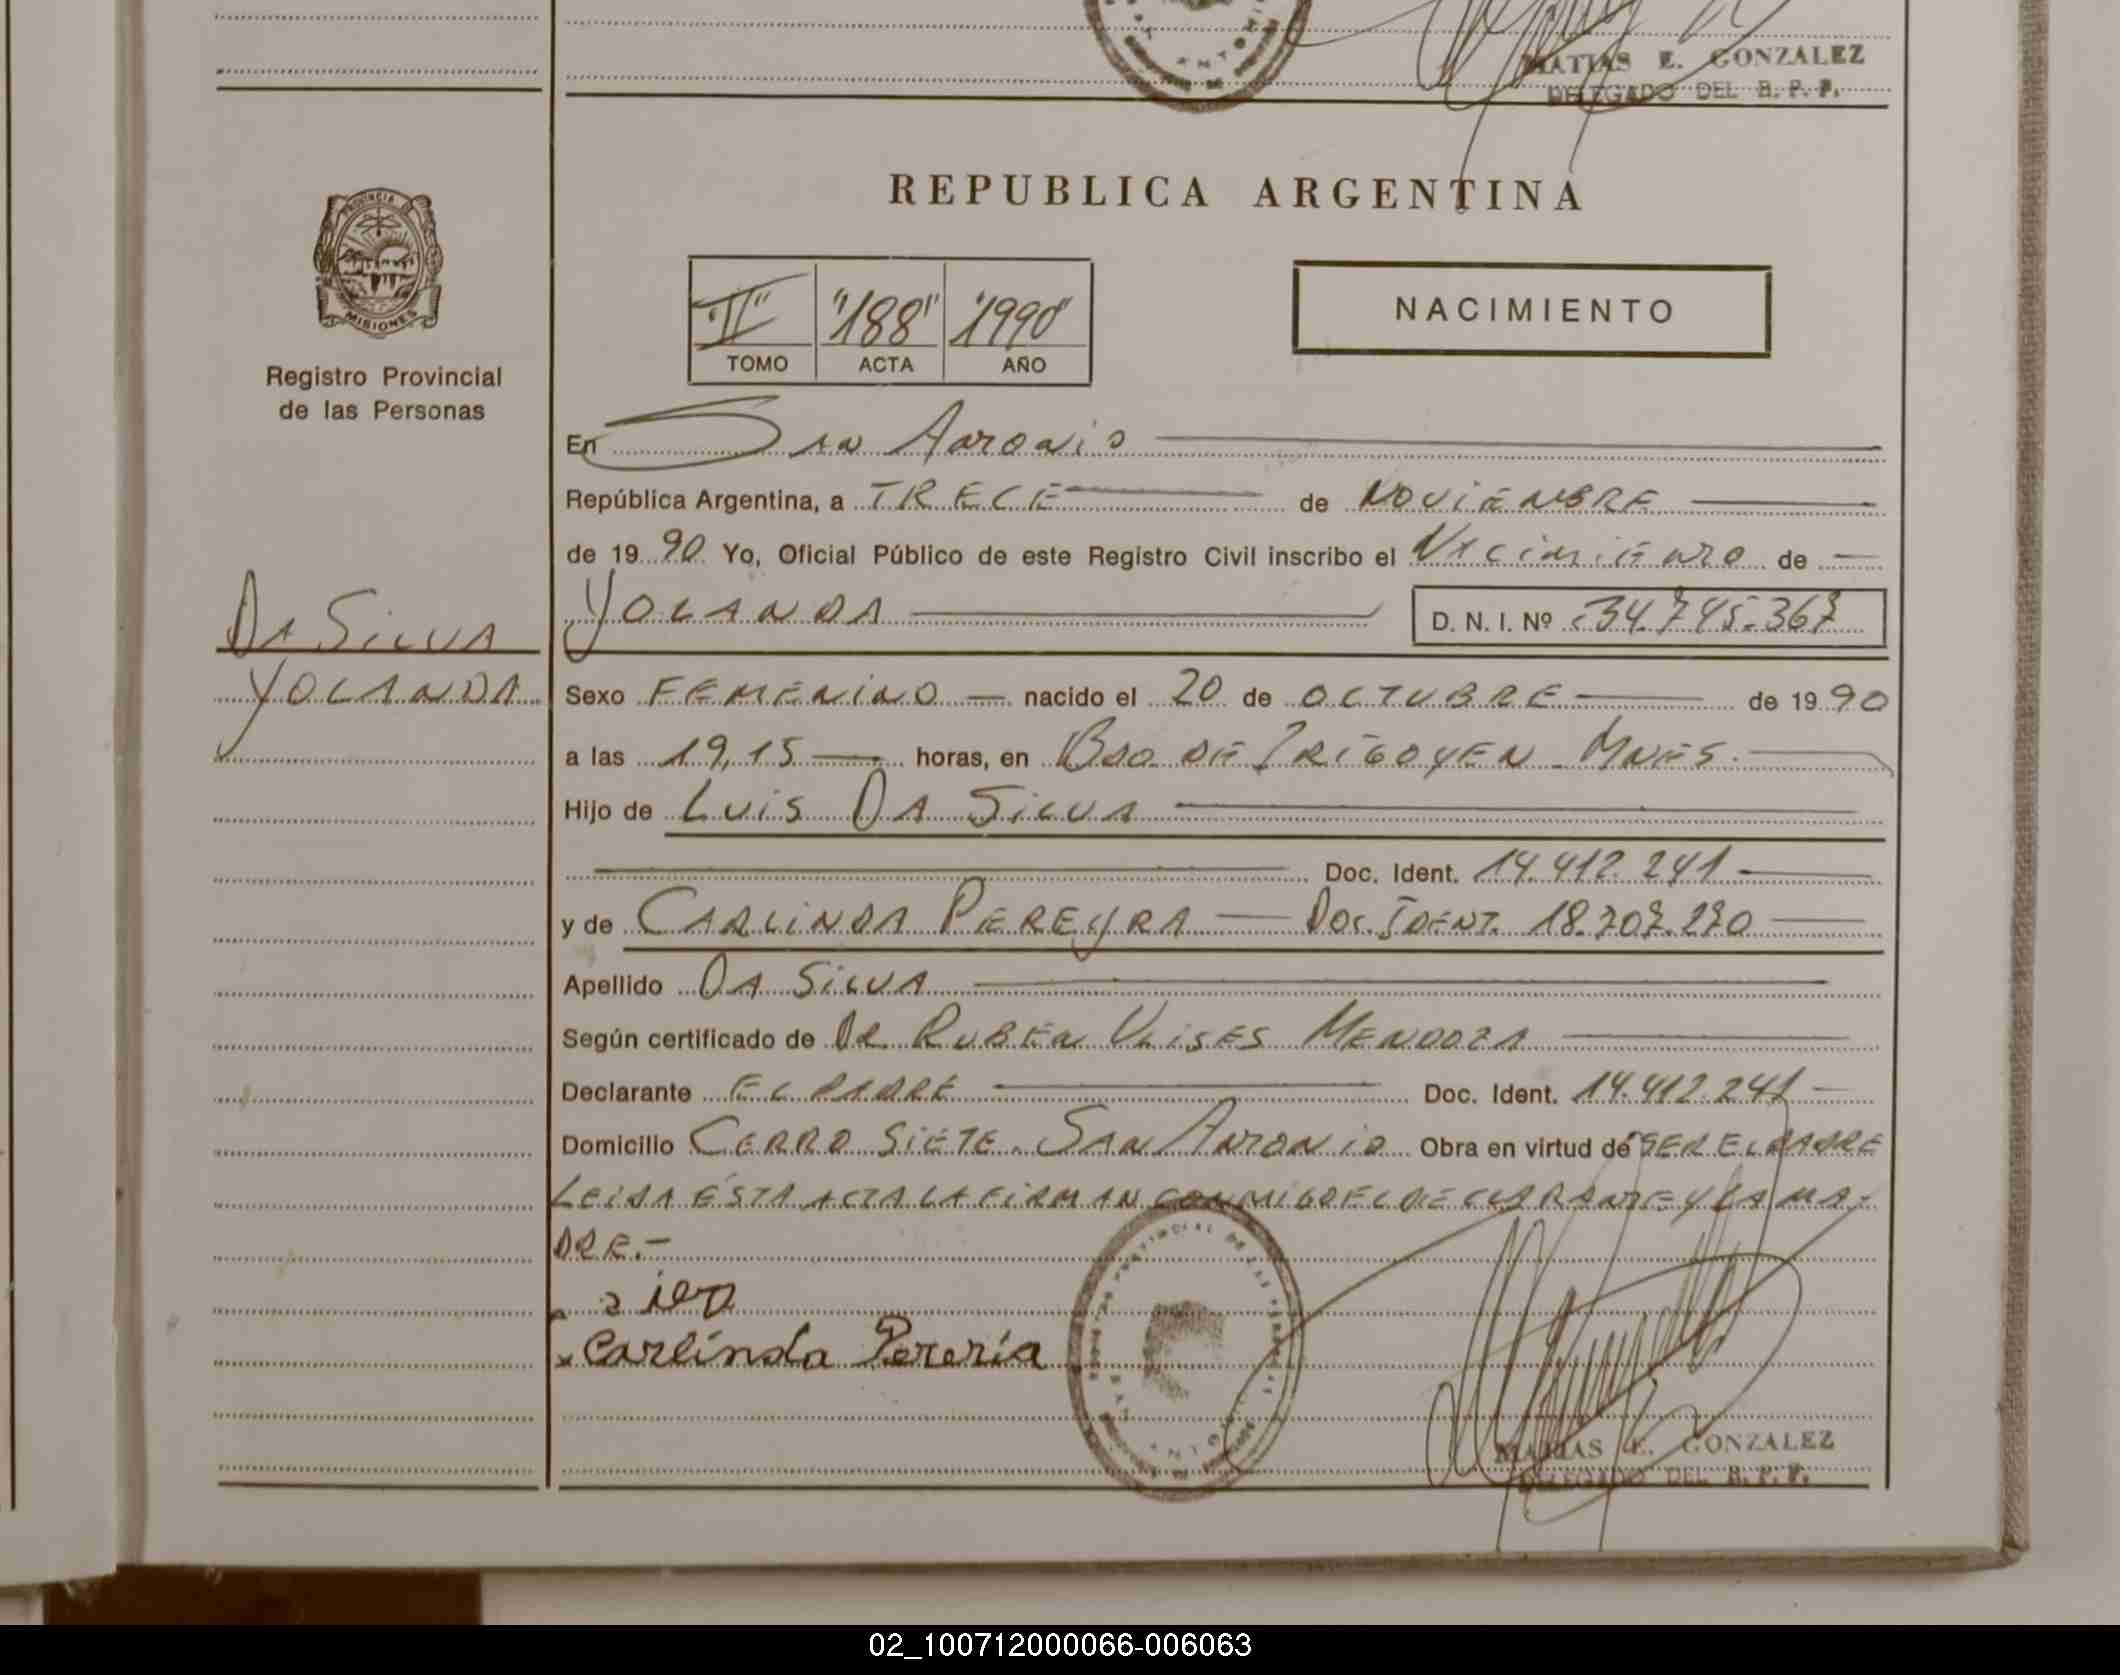 MATIAS E. GONZALEZ
DELEGADO DEL R. P. P.
PROVINCIA DE
MISIONES
Registro Provincial
de las Personas
DA SILVA
YOLANDA
REPUBLICA ARGENTINA
"II" "188" "1990"
TOMO ACTA AÑO
NACIMIENTO
En San Antonio
República Argentina, a TRECE de NOVIENBRE
de 1990 Yo, Oficial Público de este Registro Civil inscribo el Nacimiento de
YOLANDA D. N. I. Nº 34.745.367
Sexo FEMENINO nacido el 20 de OCTUBRE de 1990
a las 19,15 horas, en BDO. DE IRIGOYEN - MNES.
Hijo de LUIS DA SILVA
Doc. Ident. 14.412.241
y de CARLINDA PEREYRA Doc. IDENT. 18.707.270
Apellido DA SILVA
Según certificado de DR RUBEN ULISES MENDOZA
Declarante EL PADRE Doc. Ident. 14.412.241
Domicilio CERRO SIETE. SAN ANTONIO Obra en virtud de SER EL PADRE
LEIDA ESTA ACTA LA FIRMAN CONMIGO EL DECLARANTE Y LA MA-
DRE.-
x Carlinda Pereria
MATIAS E. GONZALEZ
DELEGADO DEL R. P. P.
02_100712000066-006063